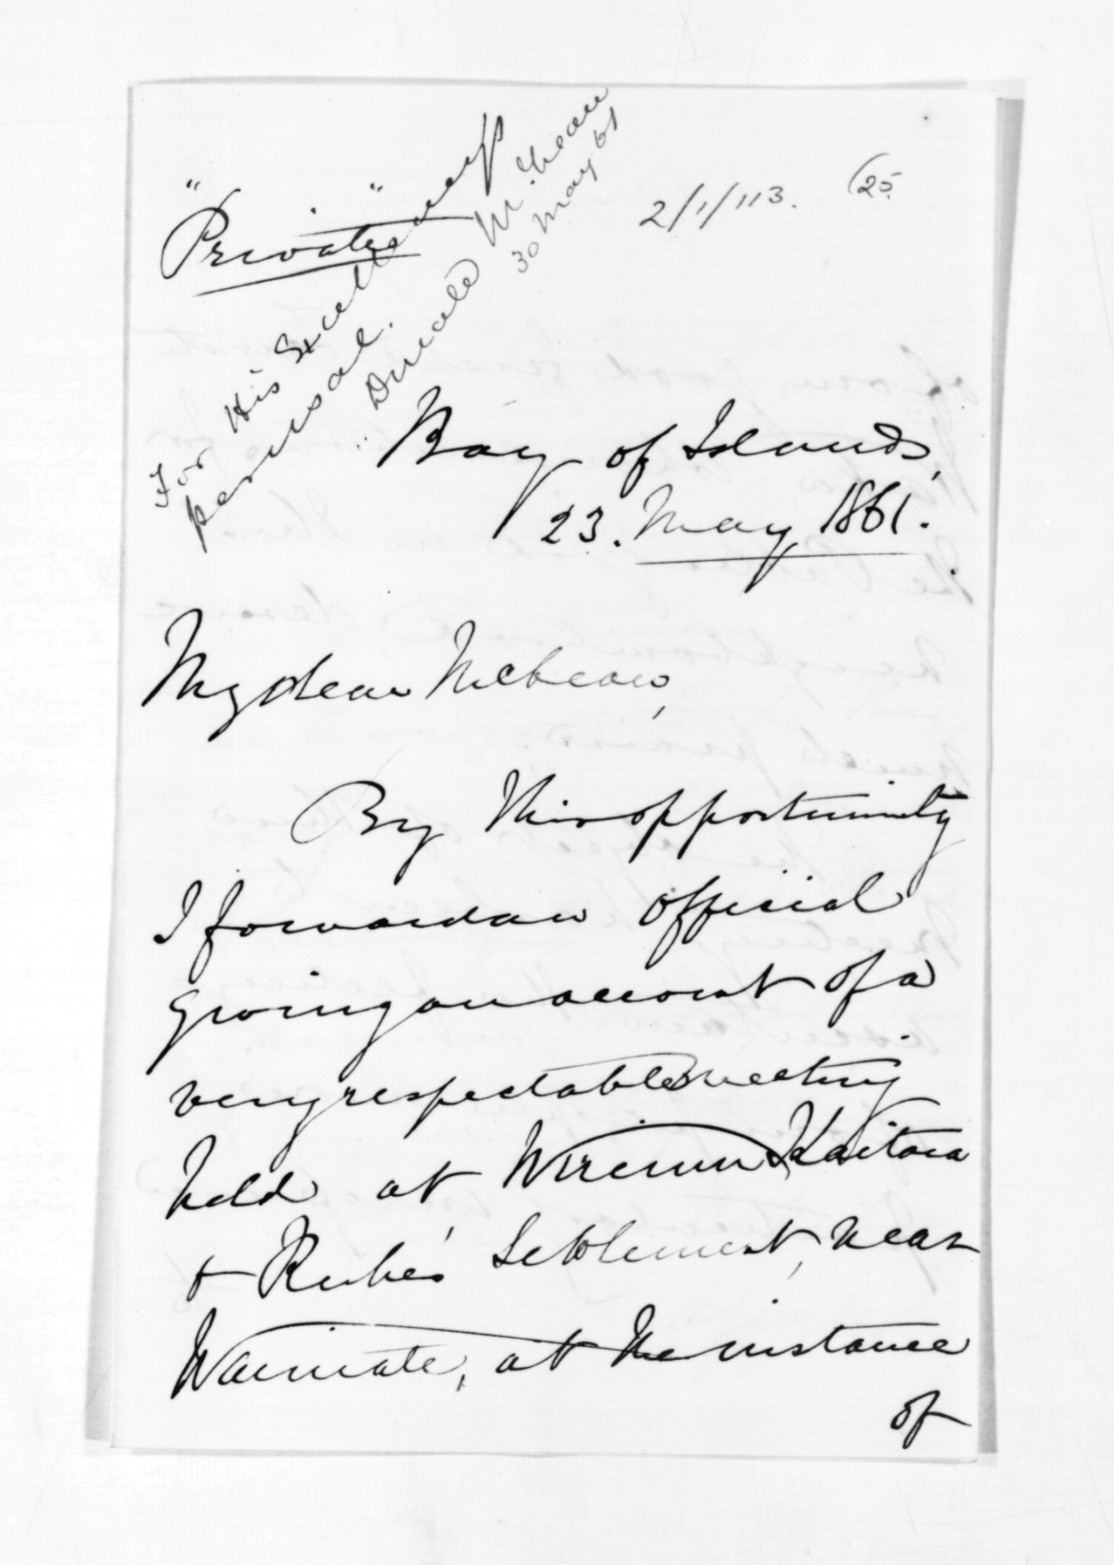 "Private"
For His Excellency's
perusal.
Donald McLean
30 May 61
2/1/113.
(25
Bay of Islands,
23. May 1861.
My dear McLean,
By this opportunity
I forward an official
giving an account of a
very respectable meeting
held at Wiremu Kaitara
& Ruhe's Settlement, near
Waimate, at the instance
of